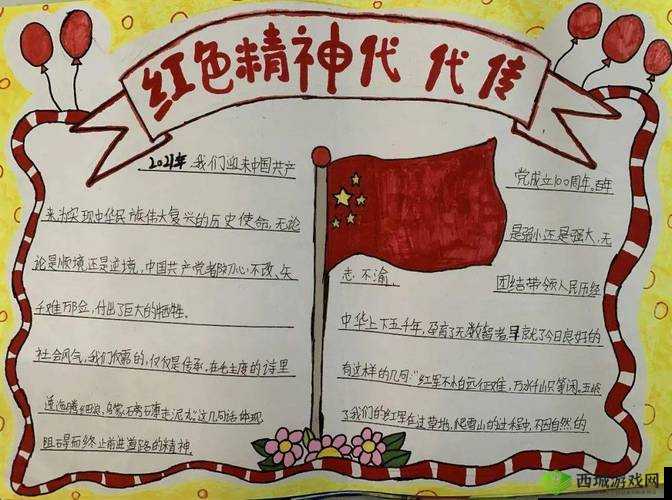 红色精神代代传
2021年,我们迎来中国共产
党成立100周年。百年
来为实现中华民族伟大复兴的历史使命,无论
是弱小还是强大,无
论是顺境还是逆境,中国共产党都初心不改、矢
志不渝,
团结带领人民历经
千难万险,付出了巨大的牺牲。
中华上下五千年,孕育了无数智者,早就了今日良好的
社会风气,我们欣赏的,仅仅是传承,在毛主席的诗里
有这样的几句:"红军不怕远征难,万水千山只等闲。五岭
逶迤腾细浪,乌蒙磅礴走泥丸"这几句话体现
了我们的红军在过草地、爬雪山的过程中,不因自然的
阻碍而终止前进道路的精神。
西城游戏网